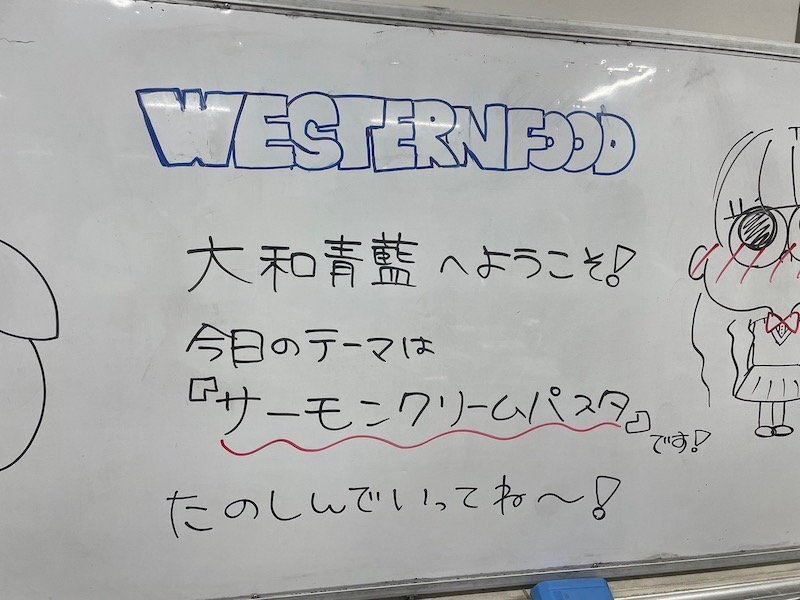 WESTERN FOOD
大和青藍へようこそ!
今日のテーマは
『サーモンクリームパスタ』です!
たのしんでいってね〜!